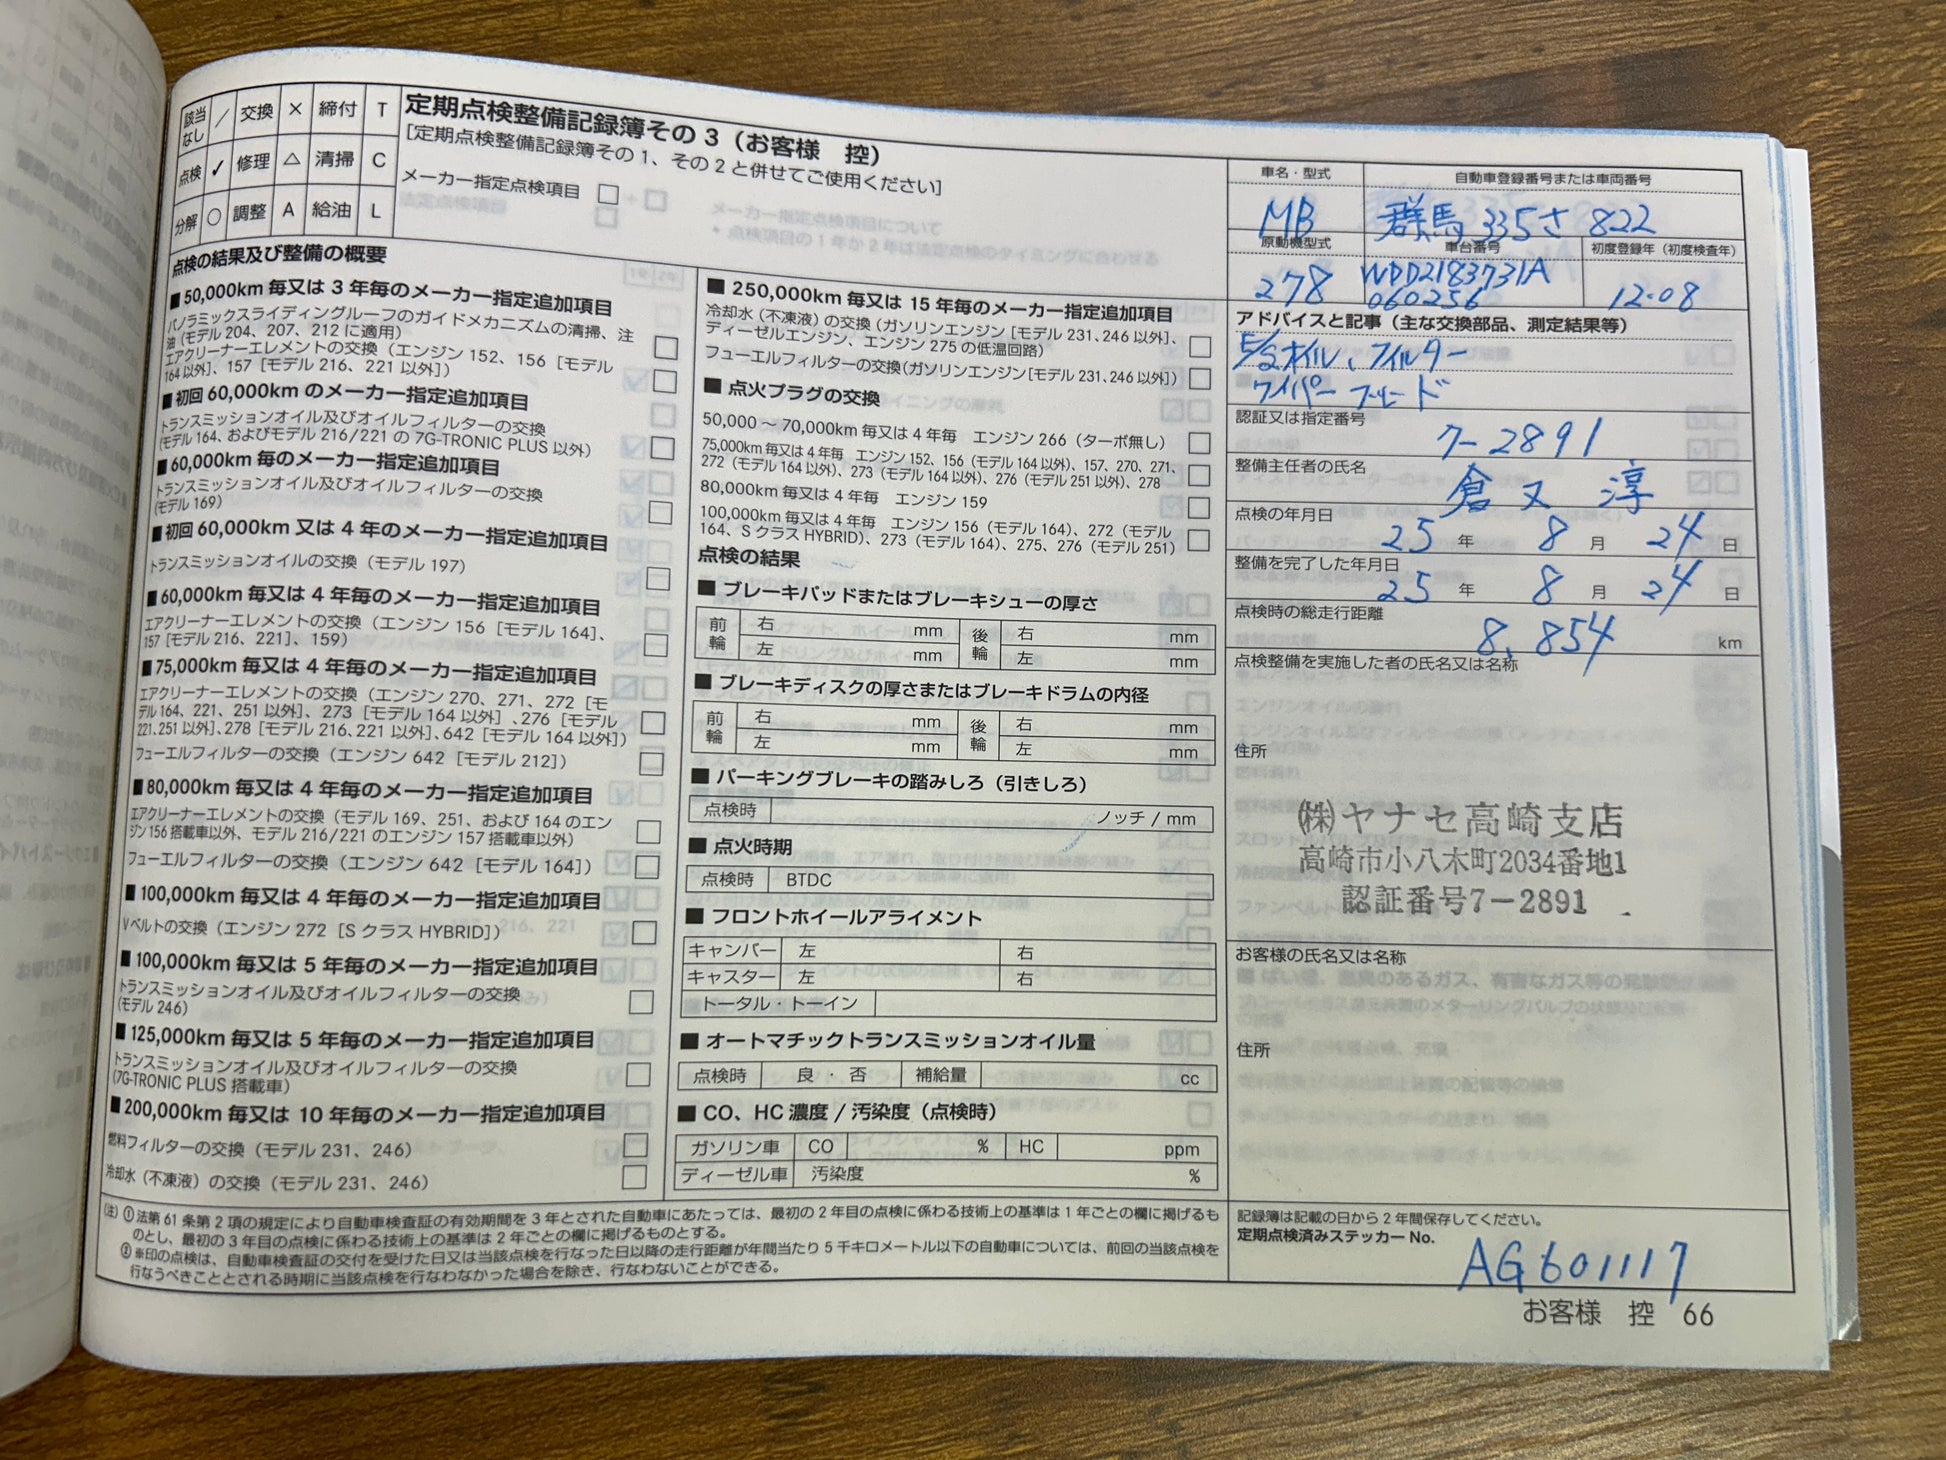 該当なし ／ 交換 × 締付 T
点検 ✓ 修理 △ 清掃 C
分解 ○ 調整 A 給油 L
定期点検整備記録簿その3（お客様　控）
［定期点検整備記録簿その1、その2と併せてご使用ください］
メーカー指定点検項目 □
点検の結果及び整備の概要
■ 50,000km 毎又は 3 年毎のメーカー指定追加項目
パノラミックスライディングルーフのガイドメカニズムの清掃、注
油（モデル 204、207、212 に適用） □
エアクリーナーエレメントの交換（エンジン 152、156［モデル
164 以外］、157［モデル 216、221 以外］） □
■ 初回 60,000km のメーカー指定追加項目
トランスミッションオイル及びオイルフィルターの交換
（モデル 164、およびモデル 216/221 の 7G-TRONIC PLUS 以外） □
■ 60,000km 毎のメーカー指定追加項目
トランスミッションオイル及びオイルフィルターの交換
（モデル 169） □
■ 初回 60,000km 又は 4 年毎のメーカー指定追加項目
トランスミッションオイルの交換（モデル 197） □
■ 60,000km 毎又は 4 年毎のメーカー指定追加項目
エアクリーナーエレメントの交換（エンジン 156［モデル 164］、
157［モデル 216、221］、159） □
■ 75,000km 毎又は 4 年毎のメーカー指定追加項目
エアクリーナーエレメントの交換（エンジン 270、271、272［モ
デル 164、221、251 以外］、273［モデル 164 以外］、276［モデル
221、251 以外］、278［モデル 216、221 以外］、642［モデル 164 以外］） □
フューエルフィルターの交換（エンジン 642［モデル 212］） □
■ 80,000km 毎又は 4 年毎のメーカー指定追加項目
エアクリーナーエレメントの交換（モデル 169、251、および 164 のエン
ジン 156 搭載車以外、モデル 216/221 のエンジン 157 搭載車以外） □
フューエルフィルターの交換（エンジン 642［モデル 164］） □
■ 100,000km 毎又は 4 年毎のメーカー指定追加項目
V ベルトの交換（エンジン 272［S クラス HYBRID］） □
■ 100,000km 毎又は 5 年毎のメーカー指定追加項目
トランスミッションオイル及びオイルフィルターの交換
（モデル 246） □
■ 125,000km 毎又は 5 年毎のメーカー指定追加項目
トランスミッションオイル及びオイルフィルターの交換
（7G-TRONIC PLUS 搭載車） □
■ 200,000km 毎又は 10 年毎のメーカー指定追加項目
燃料フィルターの交換（モデル 231、246） □
冷却水（不凍液）の交換（モデル 231、246） □
■ 250,000km 毎又は 15 年毎のメーカー指定追加項目
冷却水（不凍液）の交換（ガソリンエンジン［モデル 231、246 以外］、
ディーゼルエンジン、エンジン 275 の低温回路） □
フューエルフィルターの交換（ガソリンエンジン［モデル 231、246 以外］） □
■ 点火プラグの交換
50,000 ～ 70,000km 毎又は 4 年毎　エンジン 266（ターボ無し） □
75,000km 毎又は 4 年毎　エンジン 152、156（モデル 164 以外）、157、270、271、
272（モデル 164 以外）、273（モデル 164 以外）、276（モデル 251 以外）、278 □
80,000km 毎又は 4 年毎　エンジン 159 □
100,000km 毎又は 4 年毎　エンジン 156（モデル 164）、272（モデル
164、S クラス HYBRID）、273（モデル 164）、275、276（モデル 251） □
点検の結果
■ ブレーキパッドまたはブレーキシューの厚さ
前輪 右 mm 後輪 右 mm
左 mm 左 mm
■ ブレーキディスクの厚さまたはブレーキドラムの内径
前輪 右 mm 後輪 右 mm
左 mm 左 mm
■ パーキングブレーキの踏みしろ（引きしろ）
点検時 ノッチ / mm
■ 点火時期
点検時 BTDC
■ フロントホイールアライメント
キャンバー 左 右
キャスター 左 右
トータル・トーイン
■ オートマチックトランスミッションオイル量
点検時 良 ・ 否 補給量 cc
■ CO、HC 濃度 / 汚染度（点検時）
ガソリン車 CO % HC ppm
ディーゼル車 汚染度 %
車名・型式 自動車登録番号または車両番号
MB 群馬 335 さ 822
原動機型式 車台番号 初度登録年（初度検査年）
278 WDD2183731A
060256 12・08
アドバイスと記事（主な交換部品、測定結果等）
E/gオイル、フィルター
ワイパー ブレード
認証又は指定番号
7-2891
整備主任者の氏名
倉又 淳
点検の年月日
25 年 8 月 24 日
整備を完了した年月日
25 年 8 月 24 日
点検時の総走行距離
8,854 km
点検整備を実施した者の氏名又は名称
住所
㈱ヤナセ高崎支店
高崎市小八木町2034番地1
認証番号7－2891
お客様の氏名又は名称
住所
（注）① 法第 61 条第 2 項の規定により自動車検査証の有効期間を 3 年とされた自動車にあたっては、最初の 2 年目の点検に係わる技術上の基準は 1 年ごとの欄に掲げるも
のとし、最初の 3 年目の点検に係わる技術上の基準は 2 年ごとの欄に掲げるものとする。
② ※印の点検は、自動車検査証の交付を受けた日又は当該点検を行なった日以降の走行距離が年間当たり 5 千キロメートル以下の自動車については、前回の当該点検を
行なうべきこととされる時期に当該点検を行なわなかった場合を除き、行なわないことができる。
記録簿は記載の日から 2 年間保存してください。
定期点検済みステッカー No.
AG601117
お客様　控　66